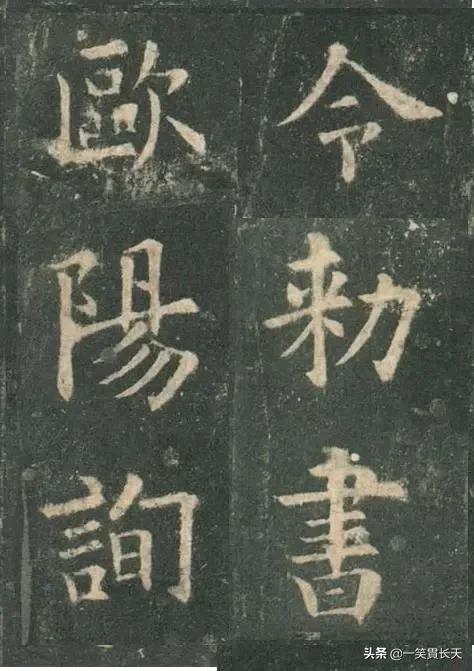 令勑書
歐陽詢
头条 @一笑貫长天